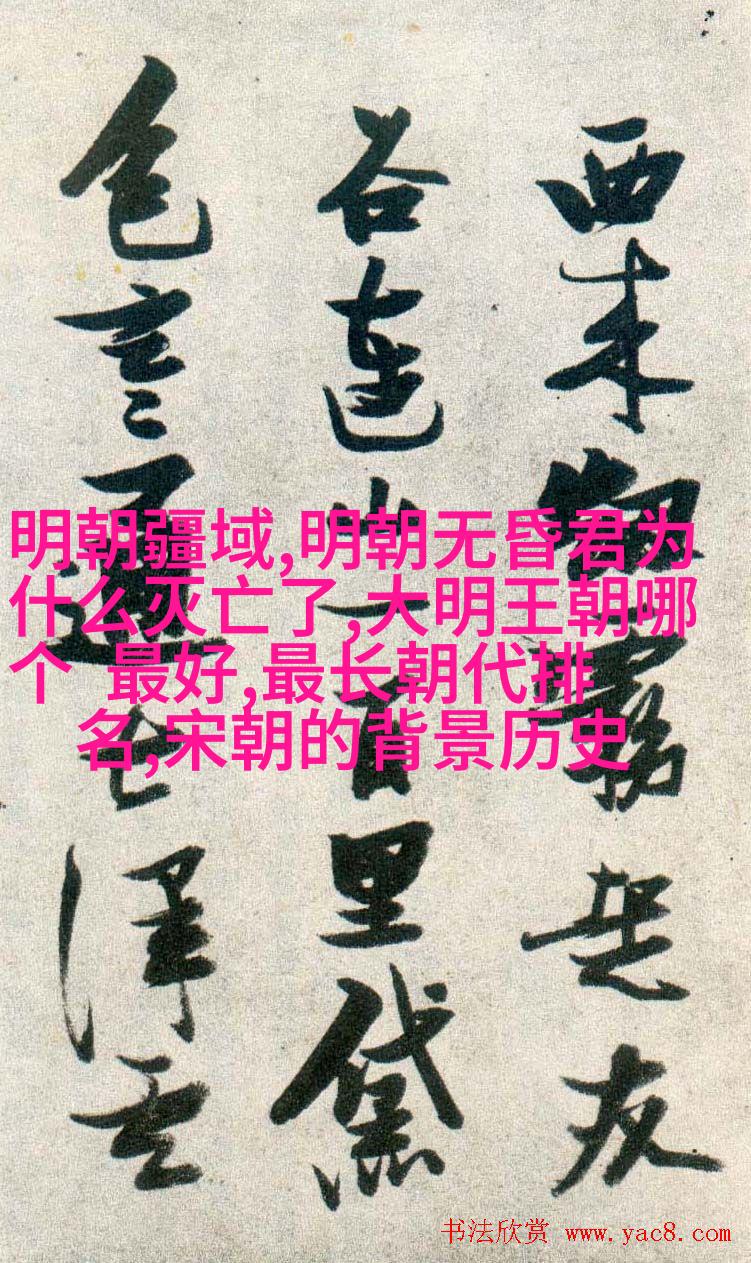 西来
谷連山一百里黛
色言
明朝疆域,明朝无昏君为
什么灭亡了,大明王朝哪
个 最好,最长朝代排
名,宋朝的背景历史
书法欣赏 www.yac8.com